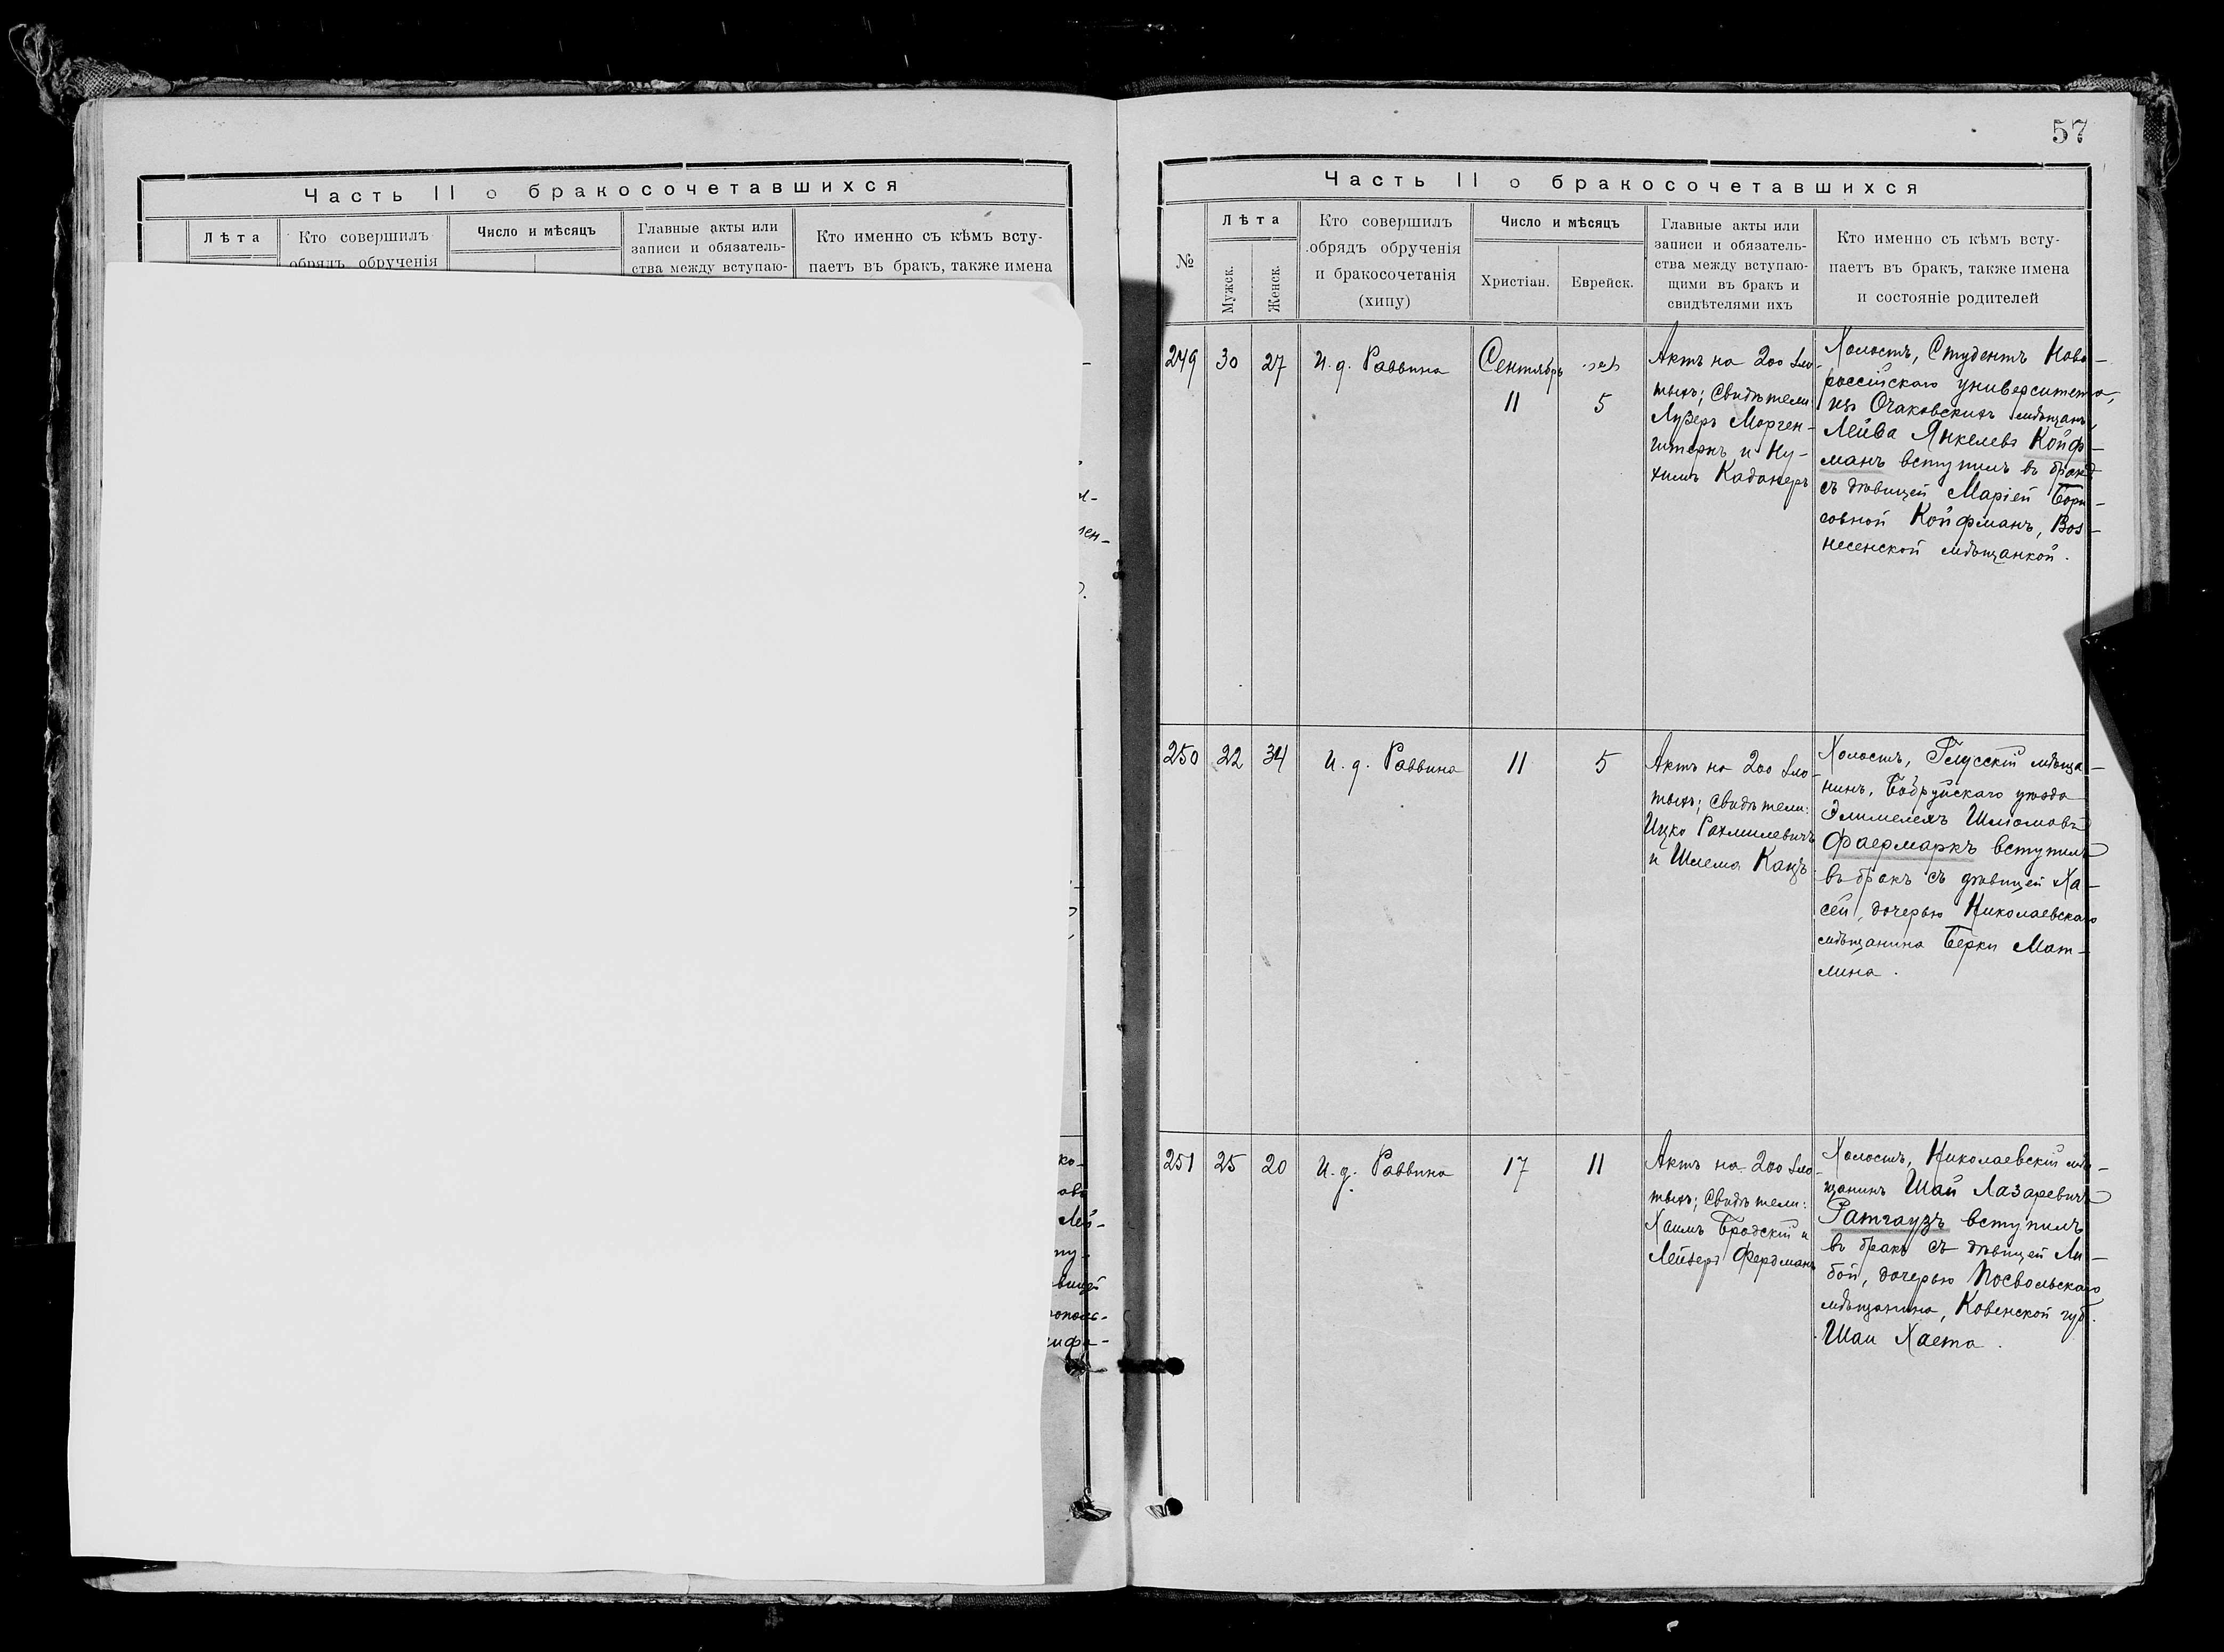 Часть II о бракосочетавшихся
Лѣта
Кто совершилъ
обрядъ обрученія
Число и мѣсяцъ
Главные акты или
записи и обязатель-
ства между вступаю-
Кто именно съ кѣмъ всту-
паетъ въ бракъ, также имена
57
Часть II о бракосочетавшихся
№
Лѣта
Мужск.
Женск.
Кто совершилъ
обрядъ обрученія
и бракосочетанія
(хипу)
Число и мѣсяцъ
Христіан.
Еврейск.
Главные акты или
записи и обязатель-
ства между вступаю-
щими въ бракъ и
свидѣтелями ихъ
Кто именно съ кѣмъ всту-
паетъ въ бракъ, также имена
и состояніе родителей
249
30
27
И. д. Раввина
Сентябрь
11
5
Актъ на 200 зло-
тыхъ; Свидѣтели:
Лузеръ Морген-
штернъ и Ну-
химъ Каданеръ
Холостъ, Студентъ Ново-
россійскаго университета,
изъ Очаковскихъ мѣщанъ,
Лейва Янкелевъ Койф-
манъ вступилъ въ бракъ
съ дѣвицей Маріей Бори-
совной Койфманъ, Воз-
несенской мѣщанкой.
250
22
34
И. д. Раввина
11
5
Актъ на 200 зло-
тыхъ; Свидѣтели:
Ицко Рахмилевичъ
и Шлема Кацъ
Холостъ, Глусскій мѣща-
нинъ, Бобруйскаго уѣзда
Элимелехъ Шліомовъ
Фаермаркъ вступилъ
въ бракъ съ дѣвицей Ха-
сей, дочерью Николаевскаго
мѣщанина Берки Мат-
лина.
251
25
20
И. д. Раввина
17
11
Актъ на 200 зло-
тыхъ; Свидѣтели:
Хаимъ Бродскій и
Лейзеръ Фердманъ
Холостъ, Николаевскій мѣ-
щанинъ Шай Лазаревичъ
Ратгаузъ вступилъ
въ бракъ съ дѣвицей Ли-
бой, дочерью Посвольскаго
мѣщанина, Ковенской губ.
Шаи Хаета.